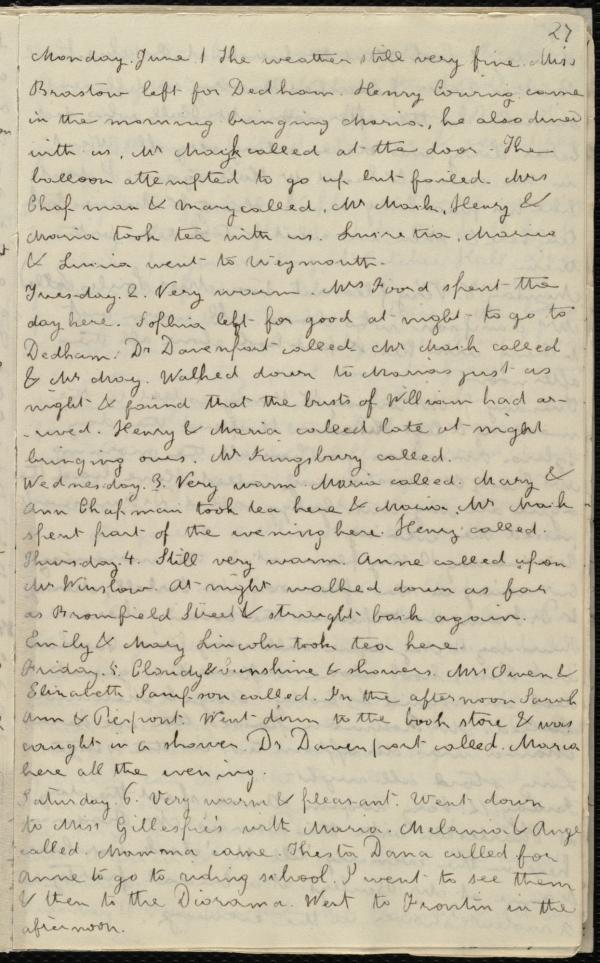 27
Monday. June 1 The weather still very fine. Miss
Brastow left for Dedham. Henry Coming came
in the morning bringing Maria, he also dined
with us. Mr Mack called at the door. The
balloon attempted to go up but failed. Mrs
Chapman & Mary called, Mr Mack, Henry &
Maria took tea with us. Lucretia, Maria
& Lucia went to Weymouth.
Tuesday. 2. Very warm. Mrs Foord spent the
day here. Sophia left for good at night to go to
Dedham. Dr Davenport called Mr Mack called
& Mr May. Walked down to Marias just as
night & found that the busts of William had ar-
-rived. Henry & Maria called late at night
bringing ours. Mr Kingsbury called.
Wednesday. 3. Very warm. Maria called. Mary &
Ann Chapman took tea here & Maria, Mr Mack
spent part of the evening here. Henry called.
Thursday. 4. Still very warm. Anne called upon
Mr Winslow. At night walked down as far
as Bromfield Street & straight back again.
Emily & Mary Lincoln took tea here.
Friday. 5. Cloudy & Sunshine & showers. Mrs Owen &
Elizabeth Sampson called. In the afternoon Sarah
Ann & Pierpont. Went down to the book store & was
caught in a shower. Dr Davenport called. Maria
here all the evening.
Saturday 6. Very warm & pleasant. Went down
to Miss Gillespie's with Maria. Melania & Ange
called. Mamma came. Thesta Dana called for
Anne to go to riding school. I went to see them
& then to the Diorama. West to Frontin in the
afternoon.